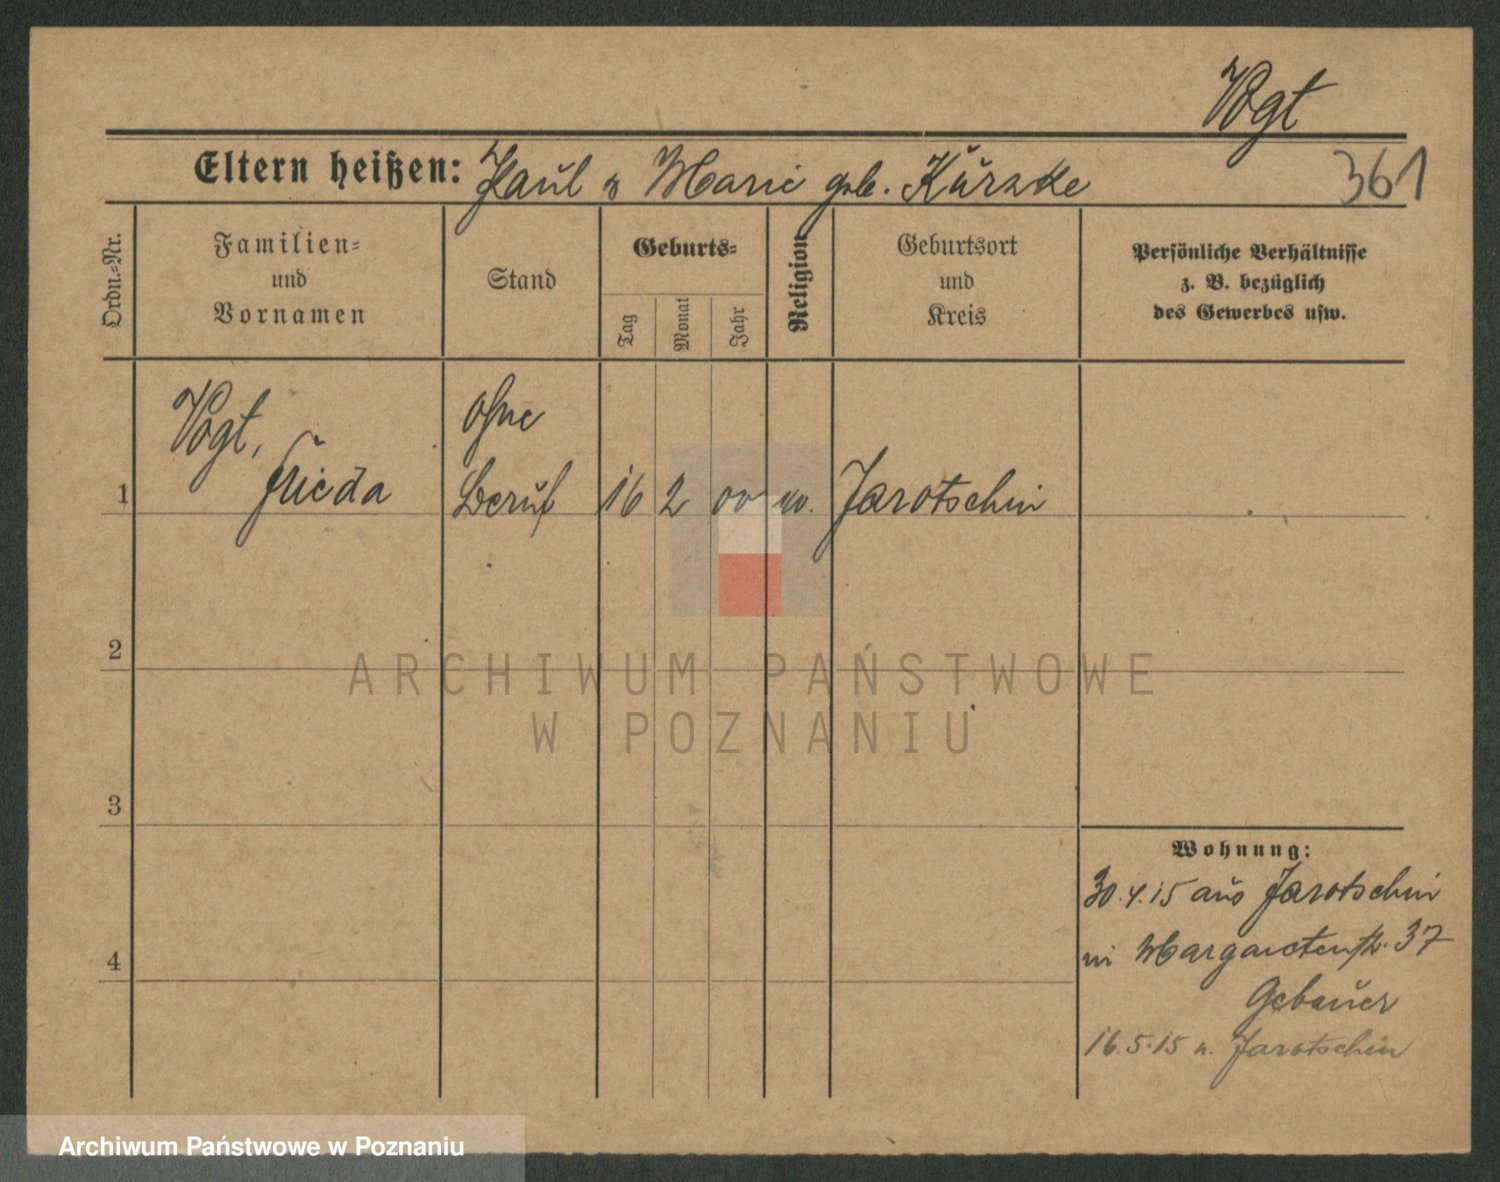 Vogt
Eltern heißen: Paul u Marie geb. Kurzke
361
Ordn.-Nr.
Familien-
und
Vornamen
Stand
Geburts-
Tag
Monat
Jahr
Religion
Geburtsort
und
Kreis
Persönliche Verhältnisse
z. B. bezüglich
des Gewerbes usw.
Vogt, ohne
1 Frieda Beruf 16 2 00 Jarotschin
2
3
4
Wohnung:
30.4.15 aus Jarotschin
in Margaretenstr. 37
Gebauer
16.5.15 n. Jarotschin
ARCHIWUM PAŃSTWOWE
W POZNANIU
Archiwum Państwowe w Poznaniu